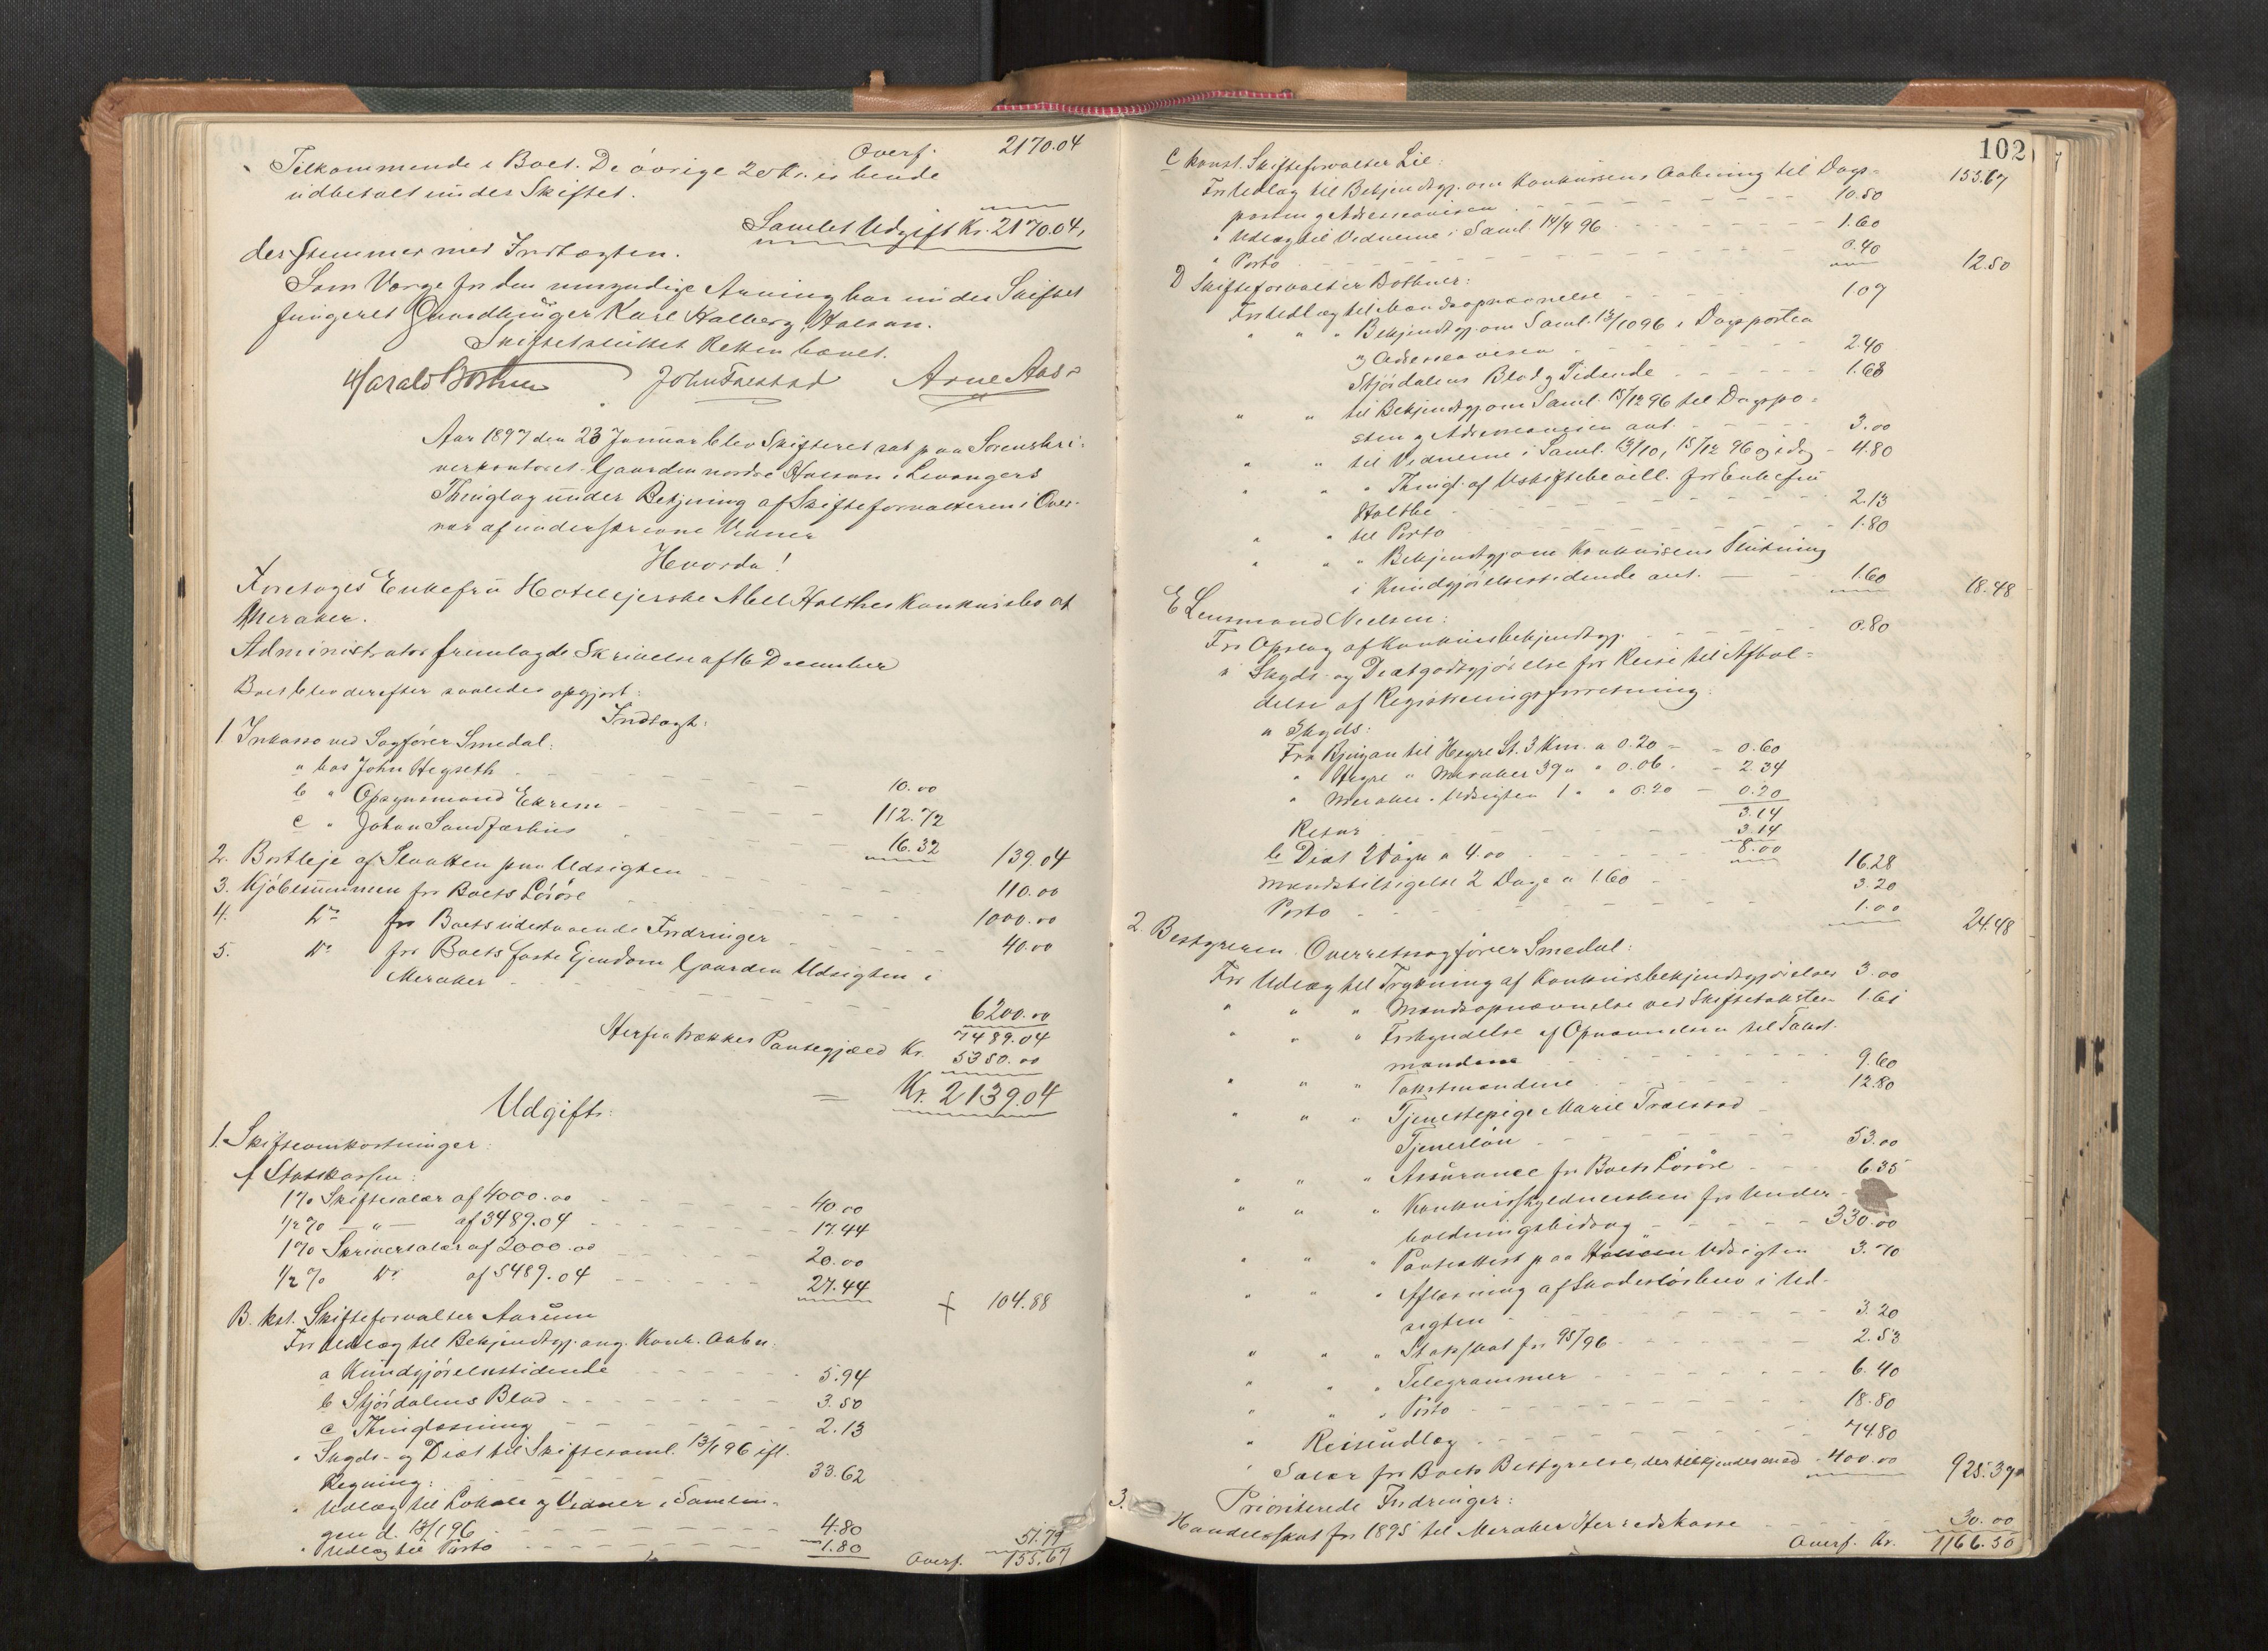 Overf. 2170.04
Tilkommende i Boet. De øvrige 20 Kr. er hende
udbetalt under Skiftet.
Samlet Udgift Kr. 2170.04,
der stemmer med Indtægten.
Som Værge for den umyndige Arving har under Skiftet
fungeret Gaardbruger Karl Halberg, Halsan.
Skiftet sluttet Retten hævet.
Harald Bothner John Frestad Arne Aas
Aar 1897 den 23 Januar blev Skifteret sat paa Sorenskri-
verkontoret Gaarden nordre Halsan i Levangers
Thinglag under Betjening af Skifteforvalteren i Over-
vær af underskrevne Vidner
Hvorda!
Foretages Enkefru Hotelejerske Abell Holthes Konkursbo af
Meraker.
Administrator fremlagde Skrivelse af 16 December
Boet blev derefter saaledes opgjort:
Indtægt:
1. Inkasso ved Sagfører Smedal:
a hos John Hegseth 10.00
b " Opsynsmand Ekrem 112.72
c " Johan Sandfærhus 16.32 139.04
2. Bortleje af Slaatten paa Udsigten 110.00
3. Kjøbesummen for Boets Løsøre 1000.00
4. Do for Boets udestaaende Fordringer 40.00
5. Do for Boets faste Ejendom Gaarden Udsigten i
Meraker 6200.00
7489.04
Herfra trækkes Pantegjæld Kr. 5350.00
= Kr. 2139.04
Udgift:
1. Skifteomkostninger:
A Statskassen:
1% Skiftesalær af 4000.00 40.00
1/2% — " — af 3489.04 17.44
1% Skriversalær af 2000.00 20.00
1/2% Do af 5489.04 27.44 + 104.88
B. kst. Skifteforvalter Aarum
For Udlæg til Bekjendtgj. ang. Konk. Aabn.
a Kundgjørelsestidende 5.94
b Stjørdalens Blad 3.50
c Thinglæsning 2.13
" Skyds- og Diæt til Skiftesaml. 13/1 96 ifl.
Regning: 33.62
" Udlæg til Lokale og Vidner i Samlin-
gen d. 13/1 96 4.80
" Udlæg til Porto 1.80 51.79
Overf. 155.67
102
C konst. Skifteforvalter Lie: 155.67
For Udlæg til Bekjendtgj. om Konkursens Aabning til Dags-
posten og Adresseavisen 10.50
" Udlæg til Vidnerne i Saml. 14/4 96 1.60
" Porto 0.40 12.50
D Skifteforvalter Bothner:
For Udlæg til Mandsopnævnelse 1.07
" " " Bekjendtgj. om Saml. 13/10 96 i Dagsposten
og Adresseavisen 2.40
Stjørdalens Blad og Tidende 1.68
" " til Bekjendtgj. om Saml. 15/12 96 til Dagspo-
sten og Adresseavisen ant. 3.00
" " til Vidnerne i Saml. 13/10, 15/12 96 og idag 4.80
" " " Thingl. af Uskiftebevill. for Enkefru
Holthe 2.13
" " til Porto 1.80
" " " Bekjendtgj. om Konkursens Slutning
i Kundgjørelsestidende ant. 1.60 18.48
E Lensmand Nielsen:
For Opslag af Konkursbekjendtgj. 0.80
" Skyds- og Diætgodtgjørelse for Reise til Afhol-
delse af Registreringsforretning:
a Skyds:
Fra Bjugan til Hegre St. 3 Km. a 0.20 = 0.60
" Hegre " Meraker 39 " " 0.06 - 2.34
" Meraker " Udsigten 1 " " 0.20 - 0.20
3.14
Retur 3.14
b Diæt 2 Døgn a 4.00 8.00 16.28
Mandstilsigelse 2 Dage a 1.60 3.20
Porto 1.00 24.48
2. Bestyreren Overretssagfører Smedal:
For Udlæg til Trykning af Konkursbekjendtgjørelser 3.00
" " " Mandsopnævnelse ved Skiftetaksten 1.61
" " " Forkyndelse af Opnævnelsen til Takst-
mændene 9.60
" " " Takstmændene 12.80
" " " Tjenestepige Marie Trælstad
Tjenerløn 53.00
" " " Assurance for Boets Løsøre 6.35
" " " Konkursskyldnersken for Under-
holdningsbidrag 330.00
" " " Panteattest paa Udsigten 3.70
" " " Aflæsning af Skadesløsbrev i Ud-
sigten 3.20
" " " Statsskat for 95/96 2.53
" " " Telegrammer 6.40
" " " Porto 18.80
" Reiseudlæg 74.80
" Salær for Boets Bestyrelse, der tilkjendes med 400.00 925.39
3. Prioriterede Fordringer:
Handelsskat for 1895 til Meraker Herredskasse 30.00
Overf. Kr. 1166.50